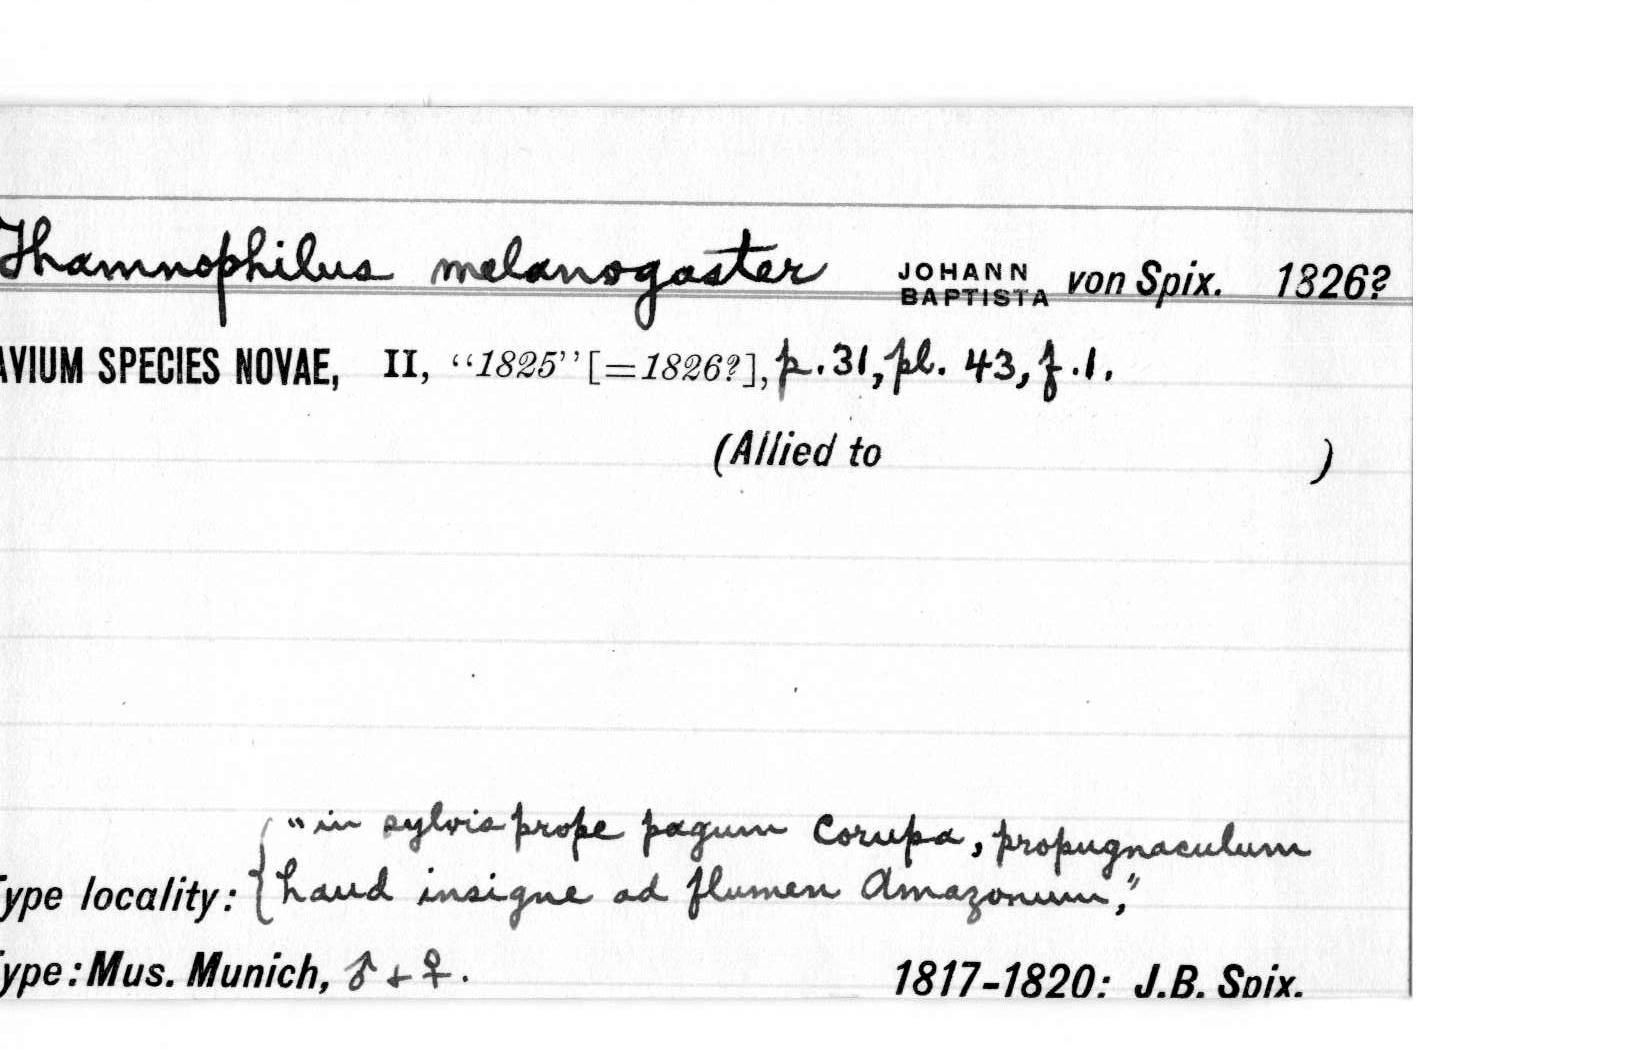 Thamnophilus melanogaster JOHANN BAPTISTA von Spix. 1826?
AVIUM SPECIES NOVAE, II, “1825” [=1826?], p. 31, pl. 43, f. 1.
(Allied to )
"in sylvis prope pagum Corupa, propugnaculum
Type locality: { haud insigne ad flumen Amazonum,"
Type: Mus. Munich, ♂ + ♀. 1817-1820: J.B. Spix.